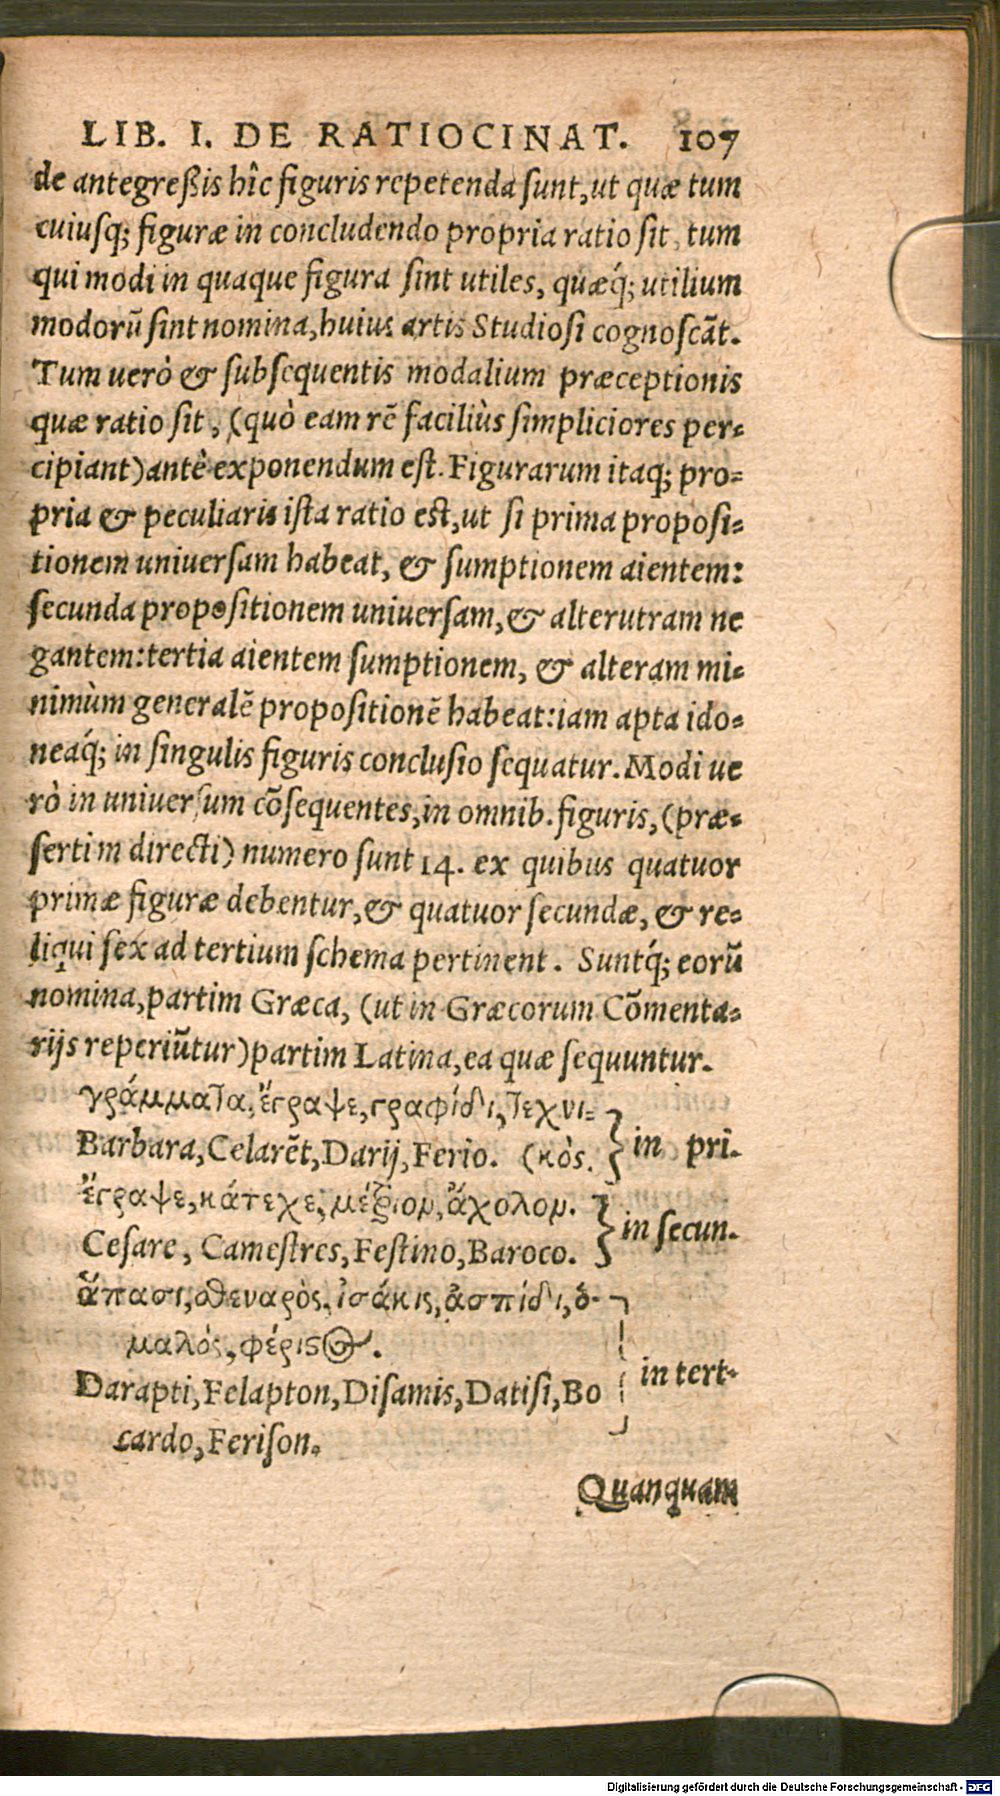 LIB. I. DE RATIOCINAT. 107
de antegreßis hîc figuris repetenda sunt, ut quæ tum
cuiusq; figuræ in concludendo propria ratio sit, tum
qui modi in quaque figura sint utiles, quæq́; utilium
modorũ sint nomina, huius artis Studiosi cognoscãt.
Tum uerò & subsequentis modalium præceptionis
quæ ratio sit, (quò eam rẽ faciliùs simpliciores per-
cipiant) antè exponendum est. Figurarum itaq; pro-
pria & peculiaris ista ratio est, ut si prima proposi-
tionem uniuersam habeat, & sumptionem aientem:
secunda propositionem uniuersam, & alterutram ne
gantem: tertia aientem sumptionem, & alteram mi-
nimùm generalẽ propositionẽ habeat: iam apta ido-
neaq́; in singulis figuris conclusio sequatur. Modi ue
rò in uniuersum cõsequentes, in omnib. figuris, (præ-
sertim directi) numero sunt 14. ex quibus quatuor
primæ figuræ debentur, & quatuor secundæ, & re-
liqui sex ad tertium schema pertinent. Suntq́; eorũ
nomina, partim Græca, (ut in Græcorum Cõmenta-
rijs reperiũtur) partim Latina, ea quæ sequuntur.
γράμματα, ἔγραψε, γραφίδι, τεχνι-
Barbara, Celarẽt, Darij, Ferio. (κὸς. } in pri.
ἔγραψε, κάτεχε, μέτριον, ἄχολον.
Cesare, Camestres, Festino, Baroco. } in secun.
ἅπασι, σθεναρὸς, ἰσάκις, ἀσπίδι, ὁ-
μαλός, φέριστος.
Darapti, Felapton, Disamis, Datisi, Bo
in tert.
cardo, Ferison.
Quanquam
Digitalisierung gefördert durch die Deutsche Forschungsgemeinschaft - DFG